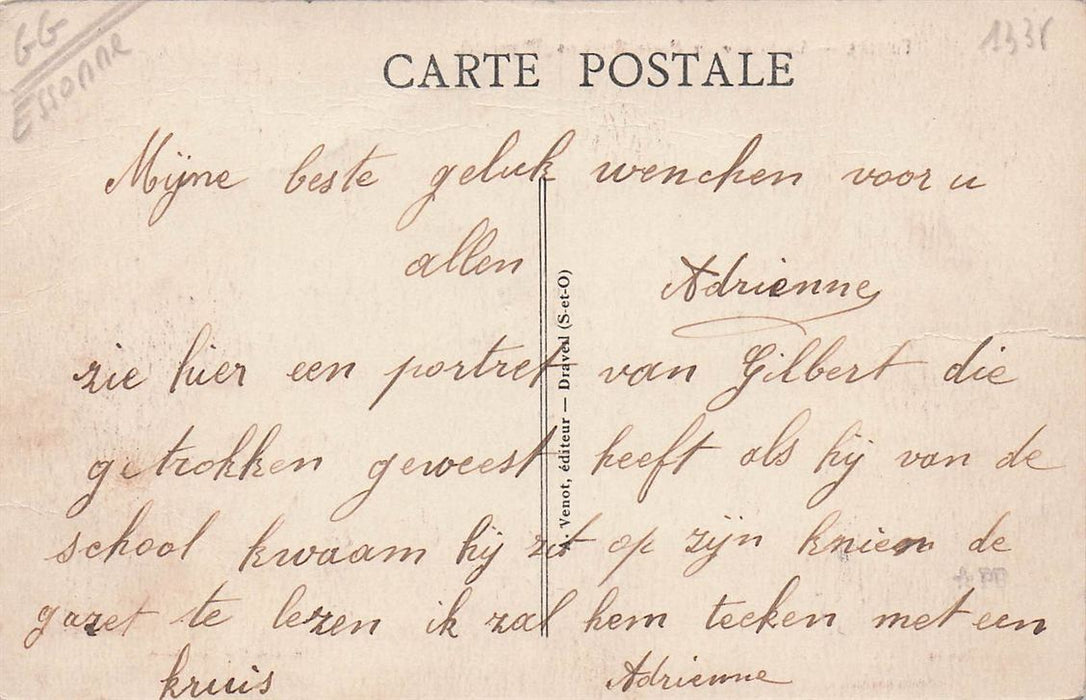 GG
ESSONNE
1331
CARTE POSTALE
Mijne beste geluk wenchen voor u
allen
Adrienne
zie hier een portret van Gilbert die
getrokken geweest heeft als hij van de
school kwaam hij zit op zijn knien de
gazet te lezen ik zal hem teeken met een
kruis
Adrienne
Venot, éditeur — Draveil (S-et-O)